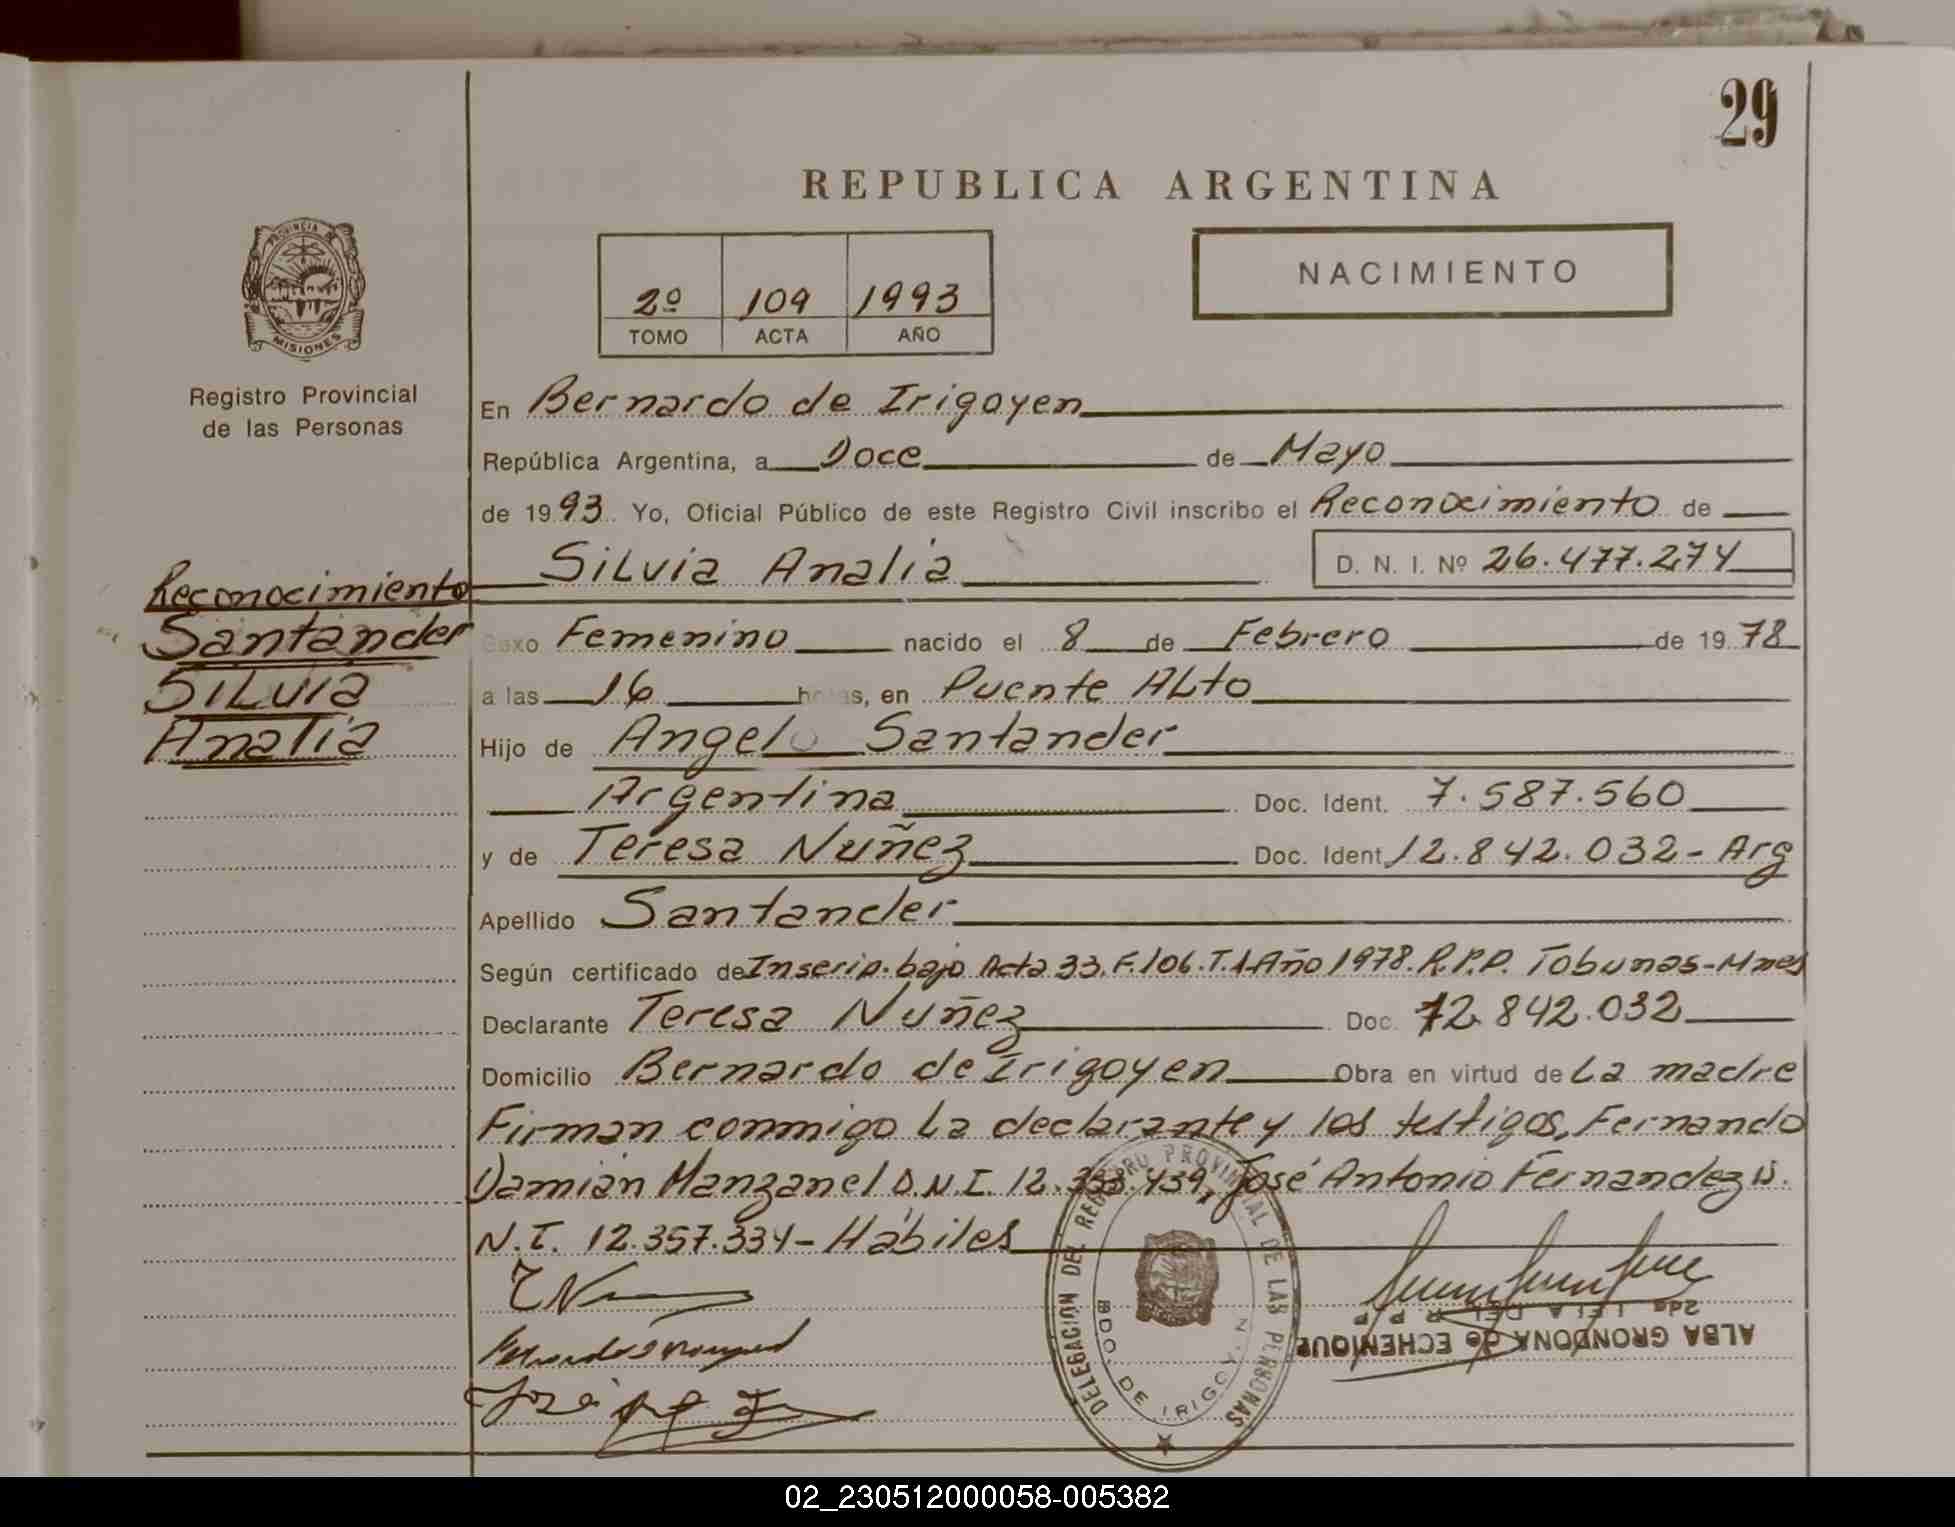 29
REPUBLICA ARGENTINA
PROVINCIA DE
MISIONES
2º 109 1993
TOMO ACTA AÑO
NACIMIENTO
Registro Provincial
de las Personas
En Bernardo de Irigoyen
República Argentina, a Doce de Mayo
de 1993. Yo, Oficial Público de este Registro Civil inscribo el Reconocimiento de
Silvia Analia D. N. I. Nº 26.477.274
Reconocimiento
Santander
Silvia
Analia
Sexo Femenino nacido el 8 de Febrero de 1978
a las 16 horas, en Puente Alto
Hijo de Angel Santander
Argentina Doc. Ident. 7.587.560
y de Teresa Nuñez Doc. Ident. 12.842.032- Arg
Apellido Santander
Según certificado de Inscrip. bajo Acta 33. F.106. T.1. Año 1978. R.P.P. Tobunas-Mnes
Declarante Teresa Nuñez Doc. 12.842.032
Domicilio Bernardo de Irigoyen Obra en virtud de La madre
Firman conmigo la declarante y los testigos, Fernando
Damián Manzanel D.N.I. 12.333.439, José Antonio Fernandez D.
N.I. 12.357.334- Hábiles
DELEGACIÓN DEL REGISTRO PROVINCIAL DE LAS PERSONAS
BDO. DE IRIGOYEN
ALBA GRONDONA de ECHENIQUE
02_230512000058-005382